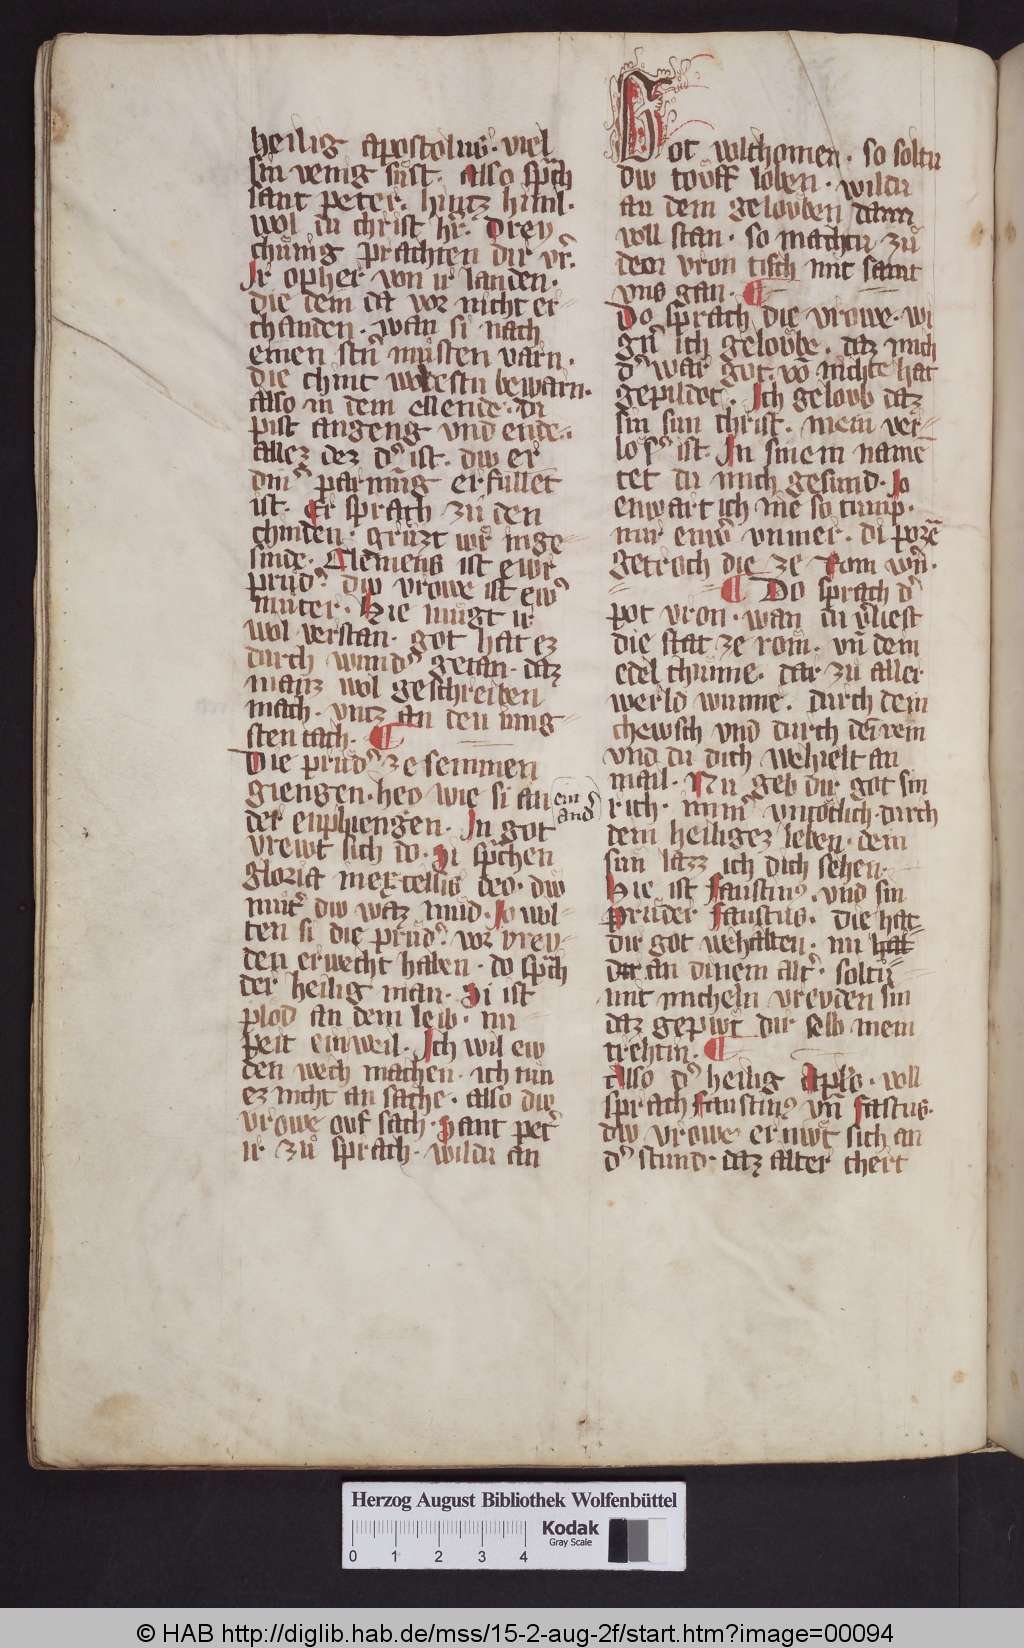 heilig apostolus · viel
sin venig sůst · Also spͣch
sant peter · hintz himil ·
wol in christ hr̄ · Drey
chůnig prachten dir vr̄ ·
Ir opher von ir landen ·
die dem da vor nicht er=
chanden · wan si nach
einen stn̄ můsten varn ·
die chint wolestu bewarn ·
also in dem ellende · du
pist angeng vnd ende ·
allez dez dˀ ist · diw er
dinˀ parmūg erfullet
ist · Er sprach zů den
chinden · grůzt wir inge=
sinde · Clemens ist ewr
průdˀ diw vrowe ist ewˀ
můter · Hie můgt ir
wol verstan · got hat ez
durch wundˀ getan · daz
manz wol geschreiben
mach · vntz an den iung=
sten tach · ¶
Die průdˀ ze semmen
giengen · heo wie si an ein
and
der enphiengen · In got
vrewt sich do · Si spͣchen
gloria in excellis deo · diw
mutˀ diw waz mud · Jo wol=
ten si die průdˀ vor vrev=
den erwecht haben · do spͣch
der heilig man · Si ist
plod an dem leib · nu
peit ein weil · Ich wil ew
den wech machen · ich tun
ez nicht an sache · also diw
vrowe ouf sach · Sant petˀ
ir zů sprach · wildu an
Got wilchomen · so soltu
diw toůff loben · wildu
an dem gelouben dann
voll stan · so machtu zů
dem vron tisch mit samt
vns gan · ¶
Do sprach die vrowe · wi
gn̄ ich geloůbe · daz mich
dˀ war got vō nichte hat
gepildet · Ich geloub daz
sin sun christ · mein ver=
losˀ ist · In sinem name
tet du mich gesund · Jo
enwart ich nie so tump ·
mir enwˀ vnmer · di pozē
getroch die ze Rom wn̄ ·
¶ Do sprach dˀ
pot vron · wan du vˀliest
die stat ze rom · vn̄ dem
edel chunne · dar zů aller
werld wunne · durch dein
chewsch vnd durch dein rein
vnd du dich wehielt an
mail · Nu geb dir got sin
rich · immˀ vntotlich · durch
dem heiligez leben · dem
sun lazz ich dich sehen ·
Hie ist faustinˀ · vnd sin
průder faustus · die hat
dir got wehalten · nu hat
du an dinem altˀ · soltu
mit micheln vrevden sin
daz gepiwt dir selb mein
trehtin · ¶
Also dˀ heilig aplo̅ · voll
sprach faustinˀ vn̄ fastus ·
diw vrowe ernuwt sich an
dˀ stund · daz alter chert
Herzog August Bibliothek Wolfenbüttel
0 1 2 3 4
Kodak
Gray Scale
© HAB http://diglib.hab.de/mss/15-2-aug-2f/start.htm?image=00094